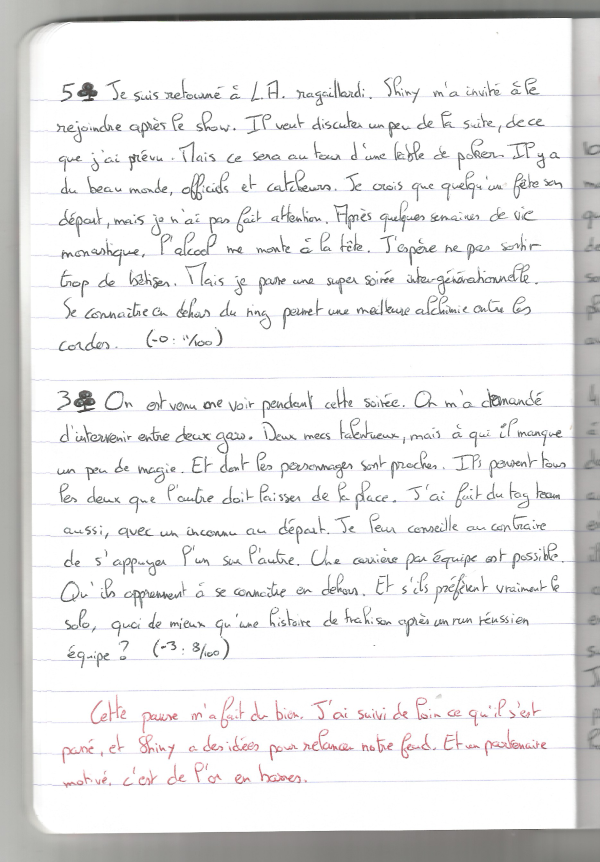 5♣ Je suis retourné à L.A. ragaillardi. Shiny m'a invité à le
rejoindre après le show. Il veut discuter un peu de la suite, de ce
que j'ai prévu. Mais ce sera autour d'une table de poker. Il y a
du beau monde, officiels et catcheurs. Je crois que quelqu'un fête son
départ, mais je n'ai pas fait attention. Après quelques semaines de vie
monastique, l'alcool me monte à la tête. J'espère ne pas sortir
trop de bêtises. Mais je passe une super soirée inter-générationnelle.
Se connaître en dehors du ring permet une meilleure alchimie entre les
cordes. (-0 : 11/100)
3♣ On est venu me voir pendant cette soirée. On m'a demandé
d'intervenir entre deux gars. Deux mecs talentueux, mais à qui il manque
un peu de magie. Et dont les personnages sont proches. Ils pensent tous
les deux que l'autre doit laisser de la place. J'ai fait du tag team
aussi, avec un inconnu au départ. Je leur conseille au contraire
de s'appuyer l'un sur l'autre. Une carrière par équipe est possible.
Qu'ils apprennent à se connaître en dehors. Et s'ils préfèrent vraiment le
solo, quoi de mieux qu'une histoire de trahison après un run réussi en
équipe ? (-3 : 8/100)
Cette pause m'a fait du bien. J'ai suivi de loin ce qu'il s'est
passé, et Shiny a des idées pour relancer notre feud. Et un partenaire
motivé, c'est de l'or en barres.